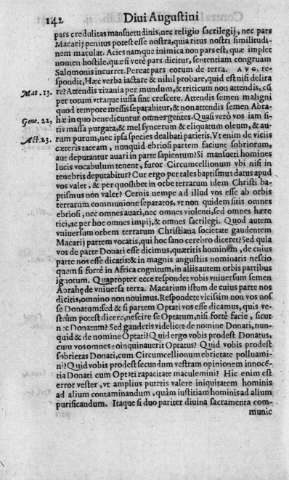 142 Diui Augustini
pars credulitas mansuetudinis, nec religio sacrilegij, nec pars
Macarij penitus potest esse nostra, quia ritus nostri similitudi-
nem maculat. Acies nanque inimica non pars est, quæ implet
nomen hostile, quæ si verè pars dicitur, sententiam congruam
Salomonis incurret. Pereat pars eorum de terra. AVG. re-
spondit, Hæc verba iactare & nihil probare, quid est nisi delira
Mat. 13. re? Attendis zizania per mundum, & triticum non attendis, cũ
per totum vtraque iussa sint crescere. Attendis semen maligni
quod tempore messis separabitur, & non attendis semen Abra-
Gene. 22, hæ in quo benedicuntur omnes gentes. Quasi verò vos iam si-
tis massa purgata, & mel syncerum & eliquatum oleum, & au-
Act. 23. rum purum, nec ipsa species dealbati parietis. Vt enim de vitiis
cæteris taceam, nunquid ebriosi partem faciunt sobriorum,
aut deputantur auari in parte sapientum? Si mansueti homines
lucis vocabulum tenent, furor Circumcellionum vbi nisi in
tenebris deputabitur? Cur ergo per tales baptismus datus apud
vos valet, & per quos libet in orbe terrarum idem Christi ba-
ptismus non valet? Cernis nempe ad illud vos esse ab orbe
terrarum communione separatos, vt non quidem sitis omnes
ebriosi, nec omnes auari, nec omnes violenti, sed omnes hære
tici, ac per hoc omnes impij, & omnes sacrilegi. Quod autem
vniuersum orbem terrarum Christiana societate gaudentem
Macarij partem vocatis, qui hoc sano cerebro diceret? Sed quia
vos de parte Donati esse dicimus, quæritis hominem, de cuius
parte nos esse dicatis: & in magnis angustiis nominatis nescio
quem si fortè in Africa cognitum, in aliis autem orbis partibus
ignotum. Quapropter ecce respondet vobis vniuersum semen
Abrahę de vniuersa terra. Macarium istum de cuius parte nos
dicitis, omnino non nouimus. Respondete vicissim non vos nos
se Donatum: sed & si partem Optati vos esse dicamus, quis ve-
strûm potest dicere, nescire se Optatum, nisi fortè facie, sicut
nec Donatum? Sed gaudetis videlicet de nomine Donati, nun-
quid & de nomine Optati? Quid ergo vobis prodest Donatus,
cum vos omnes coinquinauerit Optatus? Quid vobis prodest
sobrietas Donati, cum Circumcellionum ebrietate polluami-
ni? Quid vobis prodest secundum vestram opinionem innocẽ-
tia Donati cum Optati rapacitate maculemini? Hic enim est
error vester, vt amplius putetis valere iniquitatem hominis
ad alium contaminandum, quàm iustitiam hominis ad alium
purificandum. Itaque si duo pariter diuina sacramenta com-
munic